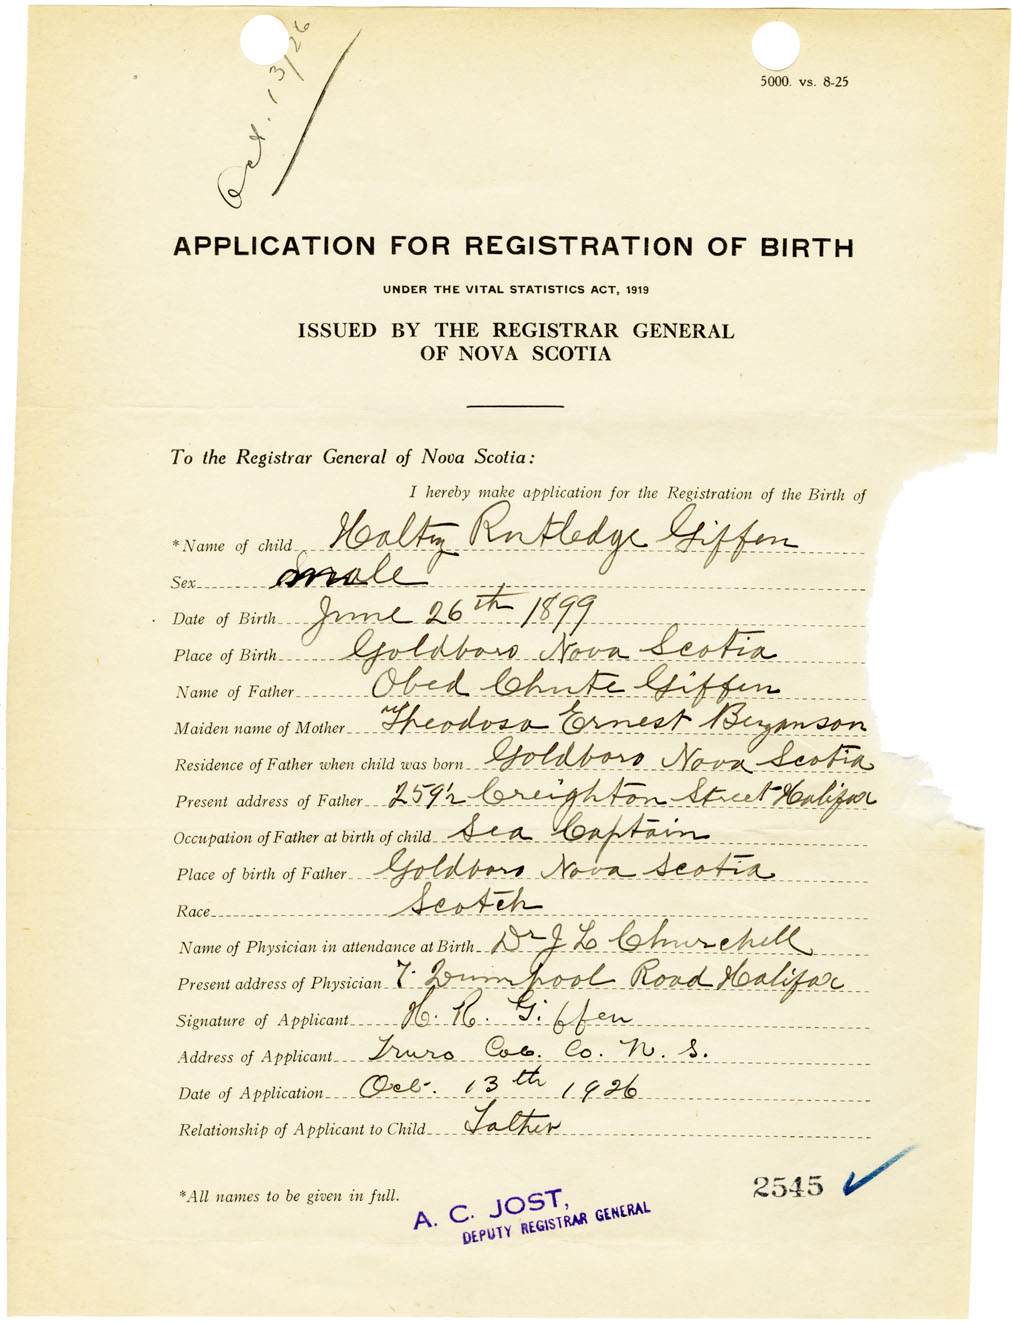 Oct. 13/26
5000. vs. 8-25
APPLICATION FOR REGISTRATION OF BIRTH
UNDER THE VITAL STATISTICS ACT, 1919
ISSUED BY THE REGISTRAR GENERAL
OF NOVA SCOTIA
To the Registrar General of Nova Scotia:
I hereby make application for the Registration of the Birth of
*Name of child Rutledge Giffen
Sex male
Date of Birth June 26th 1899
Place of Birth Goldboro Nova Scotia
Name of Father Obed Chute Giffen
Maiden name of Mother Theodosa Ernest Bezanson
Residence of Father when child was born Goldboro Nova Scotia
Present address of Father 259½ Creighton Street Halifax
Occupation of Father at birth of child Sea Captain
Place of birth of Father Goldboro Nova Scotia
Race Scotch
Name of Physician in attendance at Birth Dr J L Churchill
Present address of Physician 7 Road Halifax
Signature of Applicant H. R. Giffen
Address of Applicant Truro Col. Co. N. S.
Date of Application Oct. 13th 1926
Relationship of Applicant to Child Father
*All names to be given in full.
2545
A. C. JOST,
DEPUTY REGISTRAR GENERAL